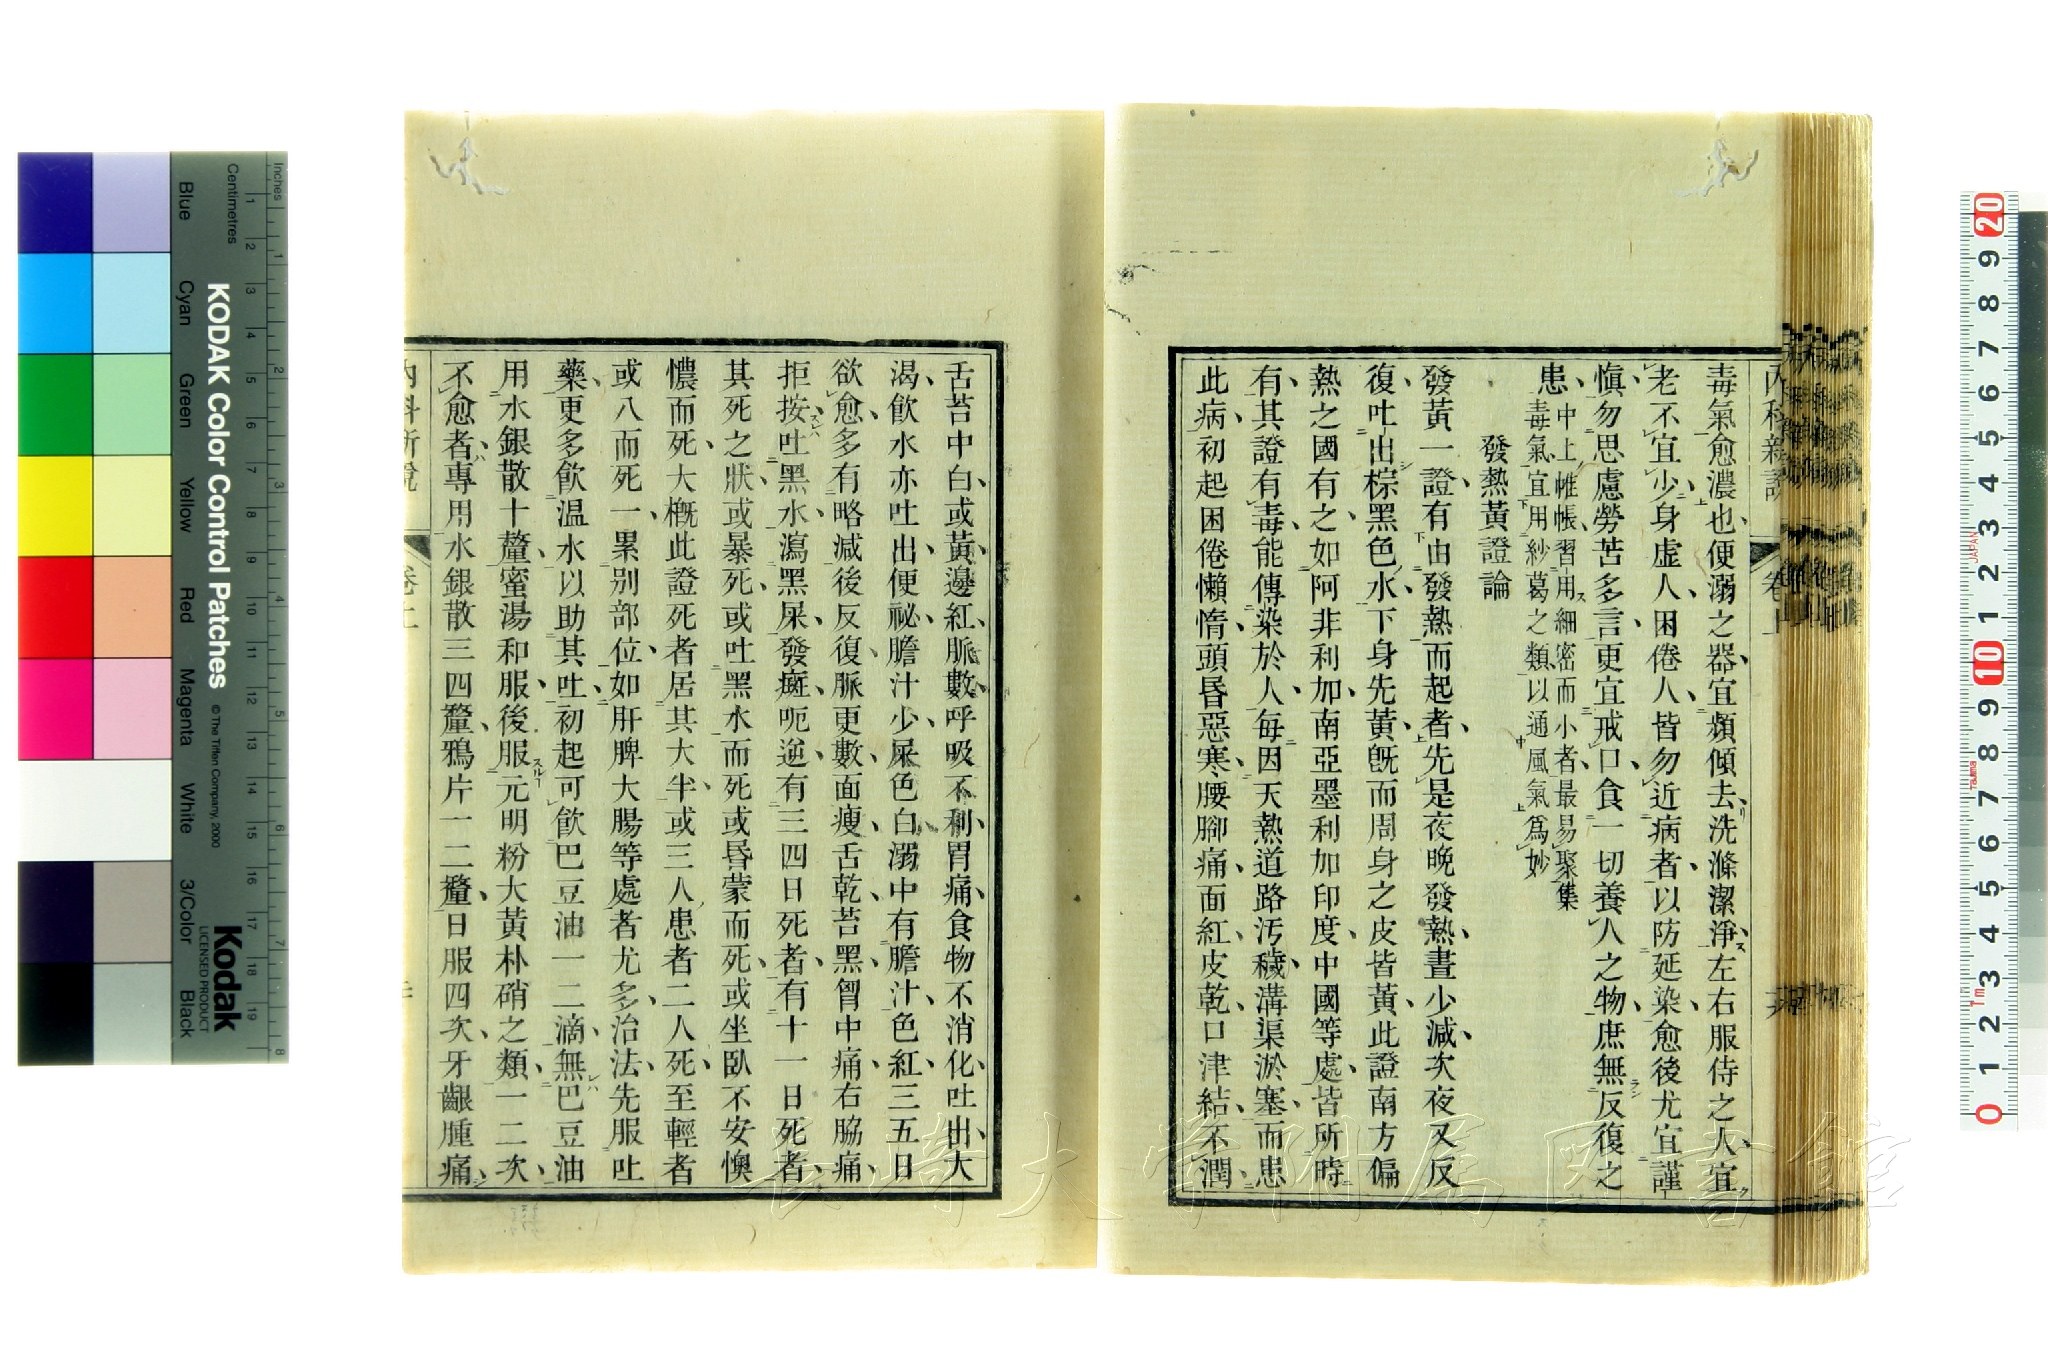 毒氣愈濃也便溺之器宜頻傾去洗滌潔淨左右服侍之人宜
老不宜少身虛人困倦人皆勿近病者以防延染愈後尤宜謹
愼勿思慮勞苦多言更宜戒口食一切養人之物庶無反復之
患
中上帷帳習用細密而小者最易聚集
毒氣宜用紗葛之類以通風氣爲妙
發熱黃證論
發黃一證有由發熱而起者先是夜晚發熱晝少減次夜又反
復吐出棕黑色水下身先黃旣而周身之皮皆黃此證南方偏
熱之國有之如阿非利加南亞墨利加印度中國等處皆所時
有其證有毒能傳染於人每因天熱道路污穢溝渠淤塞而患
此病初起困倦懶惰頭昏惡寒腰腳痛面紅皮乾口津結不潤
內科新說
卷上
舌苔中白或黃邊紅脈數呼吸不利胃痛食物不消化吐出大
渴飮水亦吐出便祕膽汁少屎色白溺中有膽汁色紅三五日
欲愈多有略減後反復脈更數面瘦舌乾苔黑胷中痛右脇痛
拒按吐黑水瀉黑屎發癍呃逆有三四日死者有十一日死者
其死之狀或暴死或吐黑水而死或昏蒙而死或坐臥不安懊
憹而死大概此證死者居其大半或三人患者二人死至輕者
或八而死一累别部位如肝脾大腸等處者尤多治法先服吐
藥更多飮温水以助其吐初起可飮巴豆油一二滴無巴豆油
用水銀散十釐蜜湯和服後服元明粉大黃朴硝之類一二次
不愈者專用水銀散三四釐鴉片一二釐日服四次牙齦腫痛
內科新說
卷上
Inches
Centimetres
KODAK Color Control Patches
© The Tiffen Company, 2000
Kodak
LICENSED PRODUCT
Blue
Cyan
Green
Yellow
Red
Magenta
White
3/Color
Black
長崎大学附属図書館